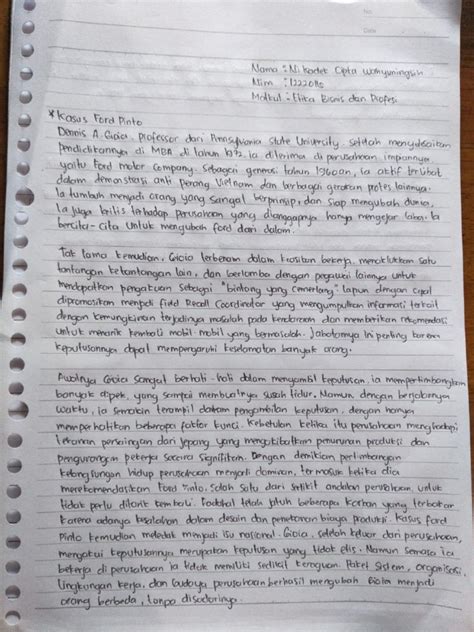 No.
Date
Nama : Ni Kadek Cipta Wahyuningsih
Nim : 1222
Matkul : Etika Bisnis dan Profesi
* Kasus Ford Pinto
Dennis A. Gioia, Professor dari Pennsylvania State University. Setelah menyelesaikan
pendidikannya di MBA di tahun 1972 ia diterima di perusahaan impiannya
yaitu Ford motor Company. Sebagai generasi tahun 1960 an, ia aktif terlibat
dalam demonstrasi anti perang Vietnam dan berbagai gerakan protes lainnya.
Ia tumbuh menjadi orang yang sangat berprinsip, dan siap mengubah dunia,
Ia juga kritis terhadap perusahaan yang dianggapnya hanya mengejar laba. Ia
bercita-cita untuk mengubah ford dari dalam.
Tak lama kemudian, Gioia terbenam dalam bekerja, menaklukkan satu
tantangan ketantangan lain, dan berlomba dengan pegawai lainnya untuk
mendapatkan pengakuan sebagai "bintang yang cemerlang". Iapun dengan cepat
dipromosikan menjadi Recall Coordinator yang mengumpulkan informasi terkait
dengan kemungkinan terjadinya masalah pada kendaraan dan memberikan rekomendasi
untuk menarik kembali mobil mobil yang bermasalah. Jabatannya ini penting karena
keputusannya dapat mempengaruhi keselamatan banyak orang.
Awalnya Gioia sangat berhati-hati dalam mengambil keputusan, ia mempertimbangkan
banyak aspek, yang sampai membuatnya susah tidur. Namun, dengan berjalannya
waktu, ia semakin terampil dalam pengambilan keputusan, dengan hanya
memperhatikan beberapa faktor kunci. Kebetulan ketika itu perusahaan menghadapi
tekanan persaingan dari Jepang yang mengakibatkan penurunan produksi dan
pengurangan pekerja secara signifikan. Dengan demikian pertimbangan
kelangsungan hidup perusahaan menjadi dominan, termasuk ketika dia
merekomendasikan Ford Pinto, salah satu dari sedikit andalan perusahaan, untuk
tidak perlu ditarik kembali. Padahal telah jatuh beberapa korban yang terbakar
karena adanya kesalahan dalam desain dan penekanan biaya produksi. Kasus Ford
Pinto kemudian meledak menjadi isu nasional. Gioia, setelah keluar dari perusahaan,
mengakui keputusannya merupakan keputusan yang tidak etis. Namun semasa ia
bekerja di perusahaan ia tidak memiliki sedikit keraguan. Sistem, organisasi,
lingkungan kerja, dan budaya perusahaan berhasil mengubah Gioia menjadi
orang berbeda, tanpa disadarinya.